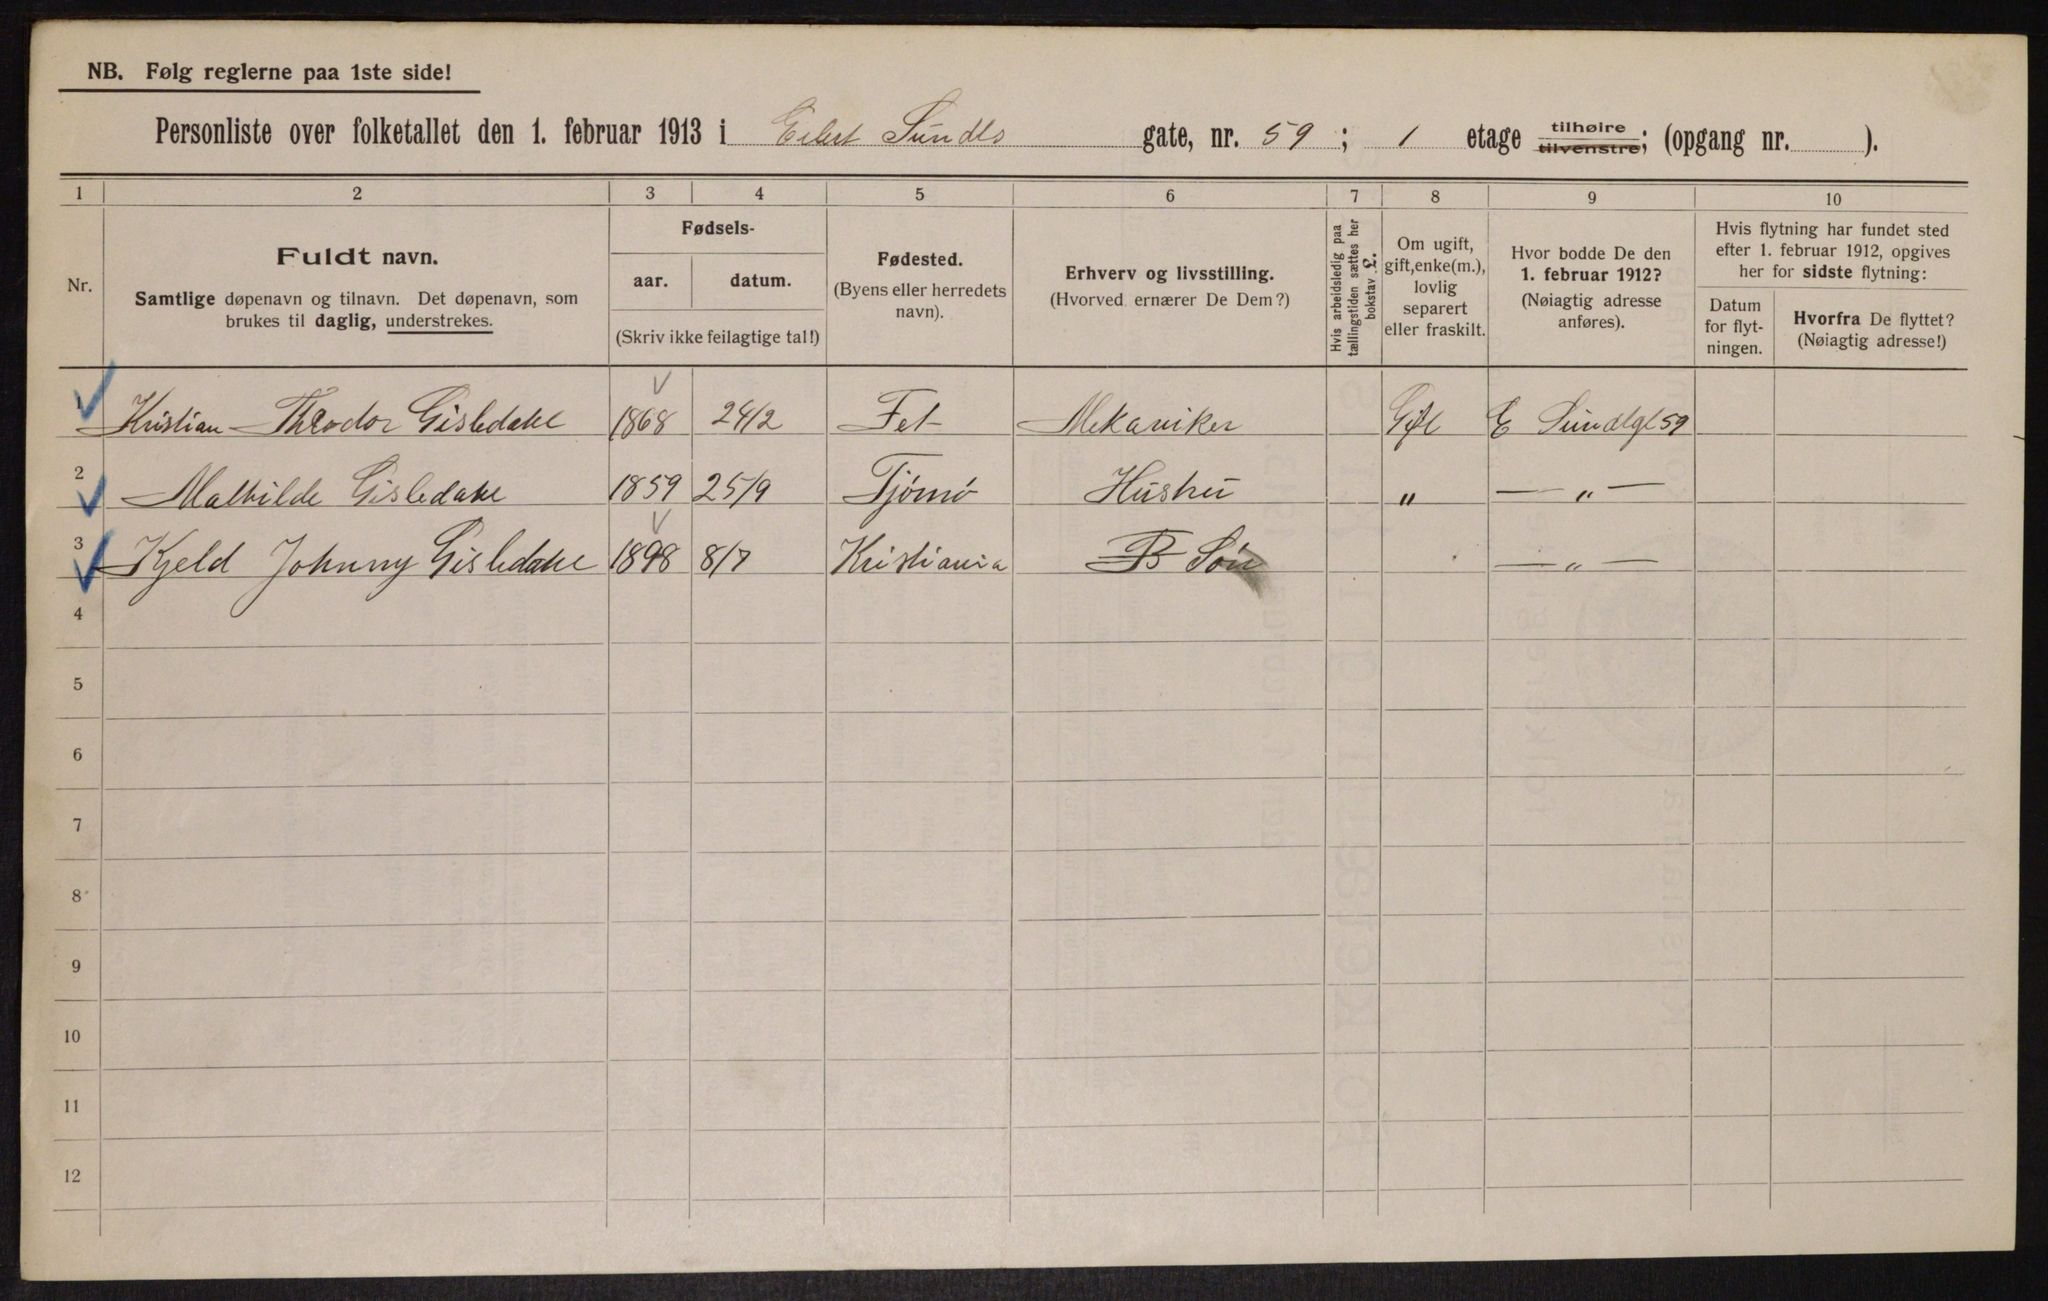 NB. Følg reglerne paa 1ste side!
Personliste over folketallet den 1. februar 1913 i Eilert Sundts gate, nr. 59; 1 etage tilhøire tilvenstre; (opgang nr. ).
1 2 3 4 5 6 7 8 9 10
Nr.
Fuldt navn.
Samtlige døpenavn og tilnavn. Det døpenavn, som
brukes til daglig, understrekes.
Fødsels-
aar. datum.
(Skriv ikke feilagtige tal!)
Fødested.
(Byens eller herredets
navn).
Erhverv og livsstilling.
(Hvorved ernærer De Dem?)
Hvis arbeidsledig paa
tællingstiden sættes her
bokstav L.
Om ugift,
gift, enke(m.),
lovlig
separert
eller fraskilt.
Hvor bodde De den
1. februar 1912?
(Nøiagtig adresse
anføres).
Hvis flytning har fundet sted
efter 1. februar 1912, opgives
her for sidste flytning:
Datum
for flyt-
ningen.
Hvorfra De flyttet?
(Nøiagtig adresse!)
1 Kristian Theodor Gisledahl 1868 24/2 Fet Mekaniker Gift E Sundtgt 59
2 Mathilde Gisledahl 1859 25/9 Tjømø Hustru " — " —
3 Kjeld Johnny Gisledahl 1898 8/7 Kristiania B Søn — " —
4
5
6
7
8
9
10
11
12